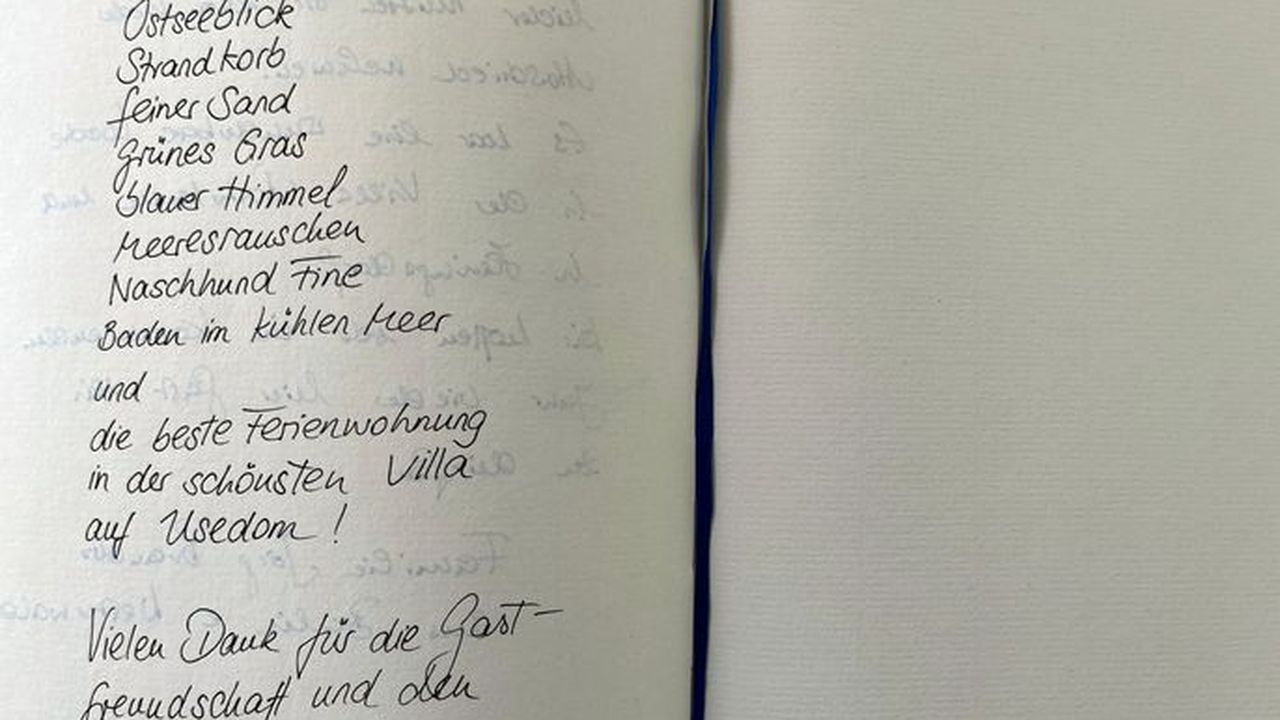 Ostseeblick
Strandkorb
feiner Sand
grünes Gras
blauer Himmel
Meeresrauschen
Naschhund Fine
Baden im kühlen Meer
und
die beste Ferienwohnung
in der schönsten Villa
auf Usedom !
Vielen Dank für die Gast-
freundschaft und den